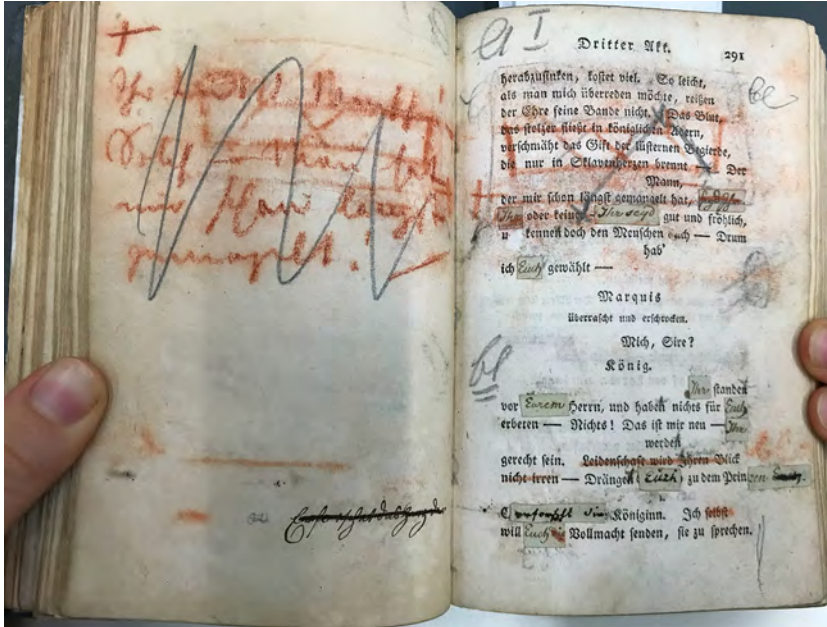 +
Solch ein Mann hat
mir schon längst
gemangelt.
a I
Dritter Akt.
291
herabzusinken, kostet viel. So leicht,
als man mich überreden möchte, reißen
bl
der Ehre seine Bande nicht. Das Blut,
das stolzer fließt in königlichen Adern,
verschmäht das Gift der lüsternen Begierde,
die nur in Sklavenherzen brennt — Der
Mann,
der mir schon längst gemangelt hat,
Ihr oder keiner – Ihr seyd gut und fröhlich,
u kennen doch den Menschen auch — Drum
hab'
ich Euch gewählt —
Marquis
überrascht und erschrocken.
Mich, Sire?
König.
bl
Ihr standen
vor Eurem Herrn, und haben nichts für Euch
erbeten — Nichts! Das ist mir neu — Ihr
werden
gerecht sein. Leidenschaft wird Ihren Blick
nicht irren — Drängen Euch zu dem Prinzen
erforscht die Königinn. Ich selbst
will Euch Vollmacht senden, sie zu sprechen.